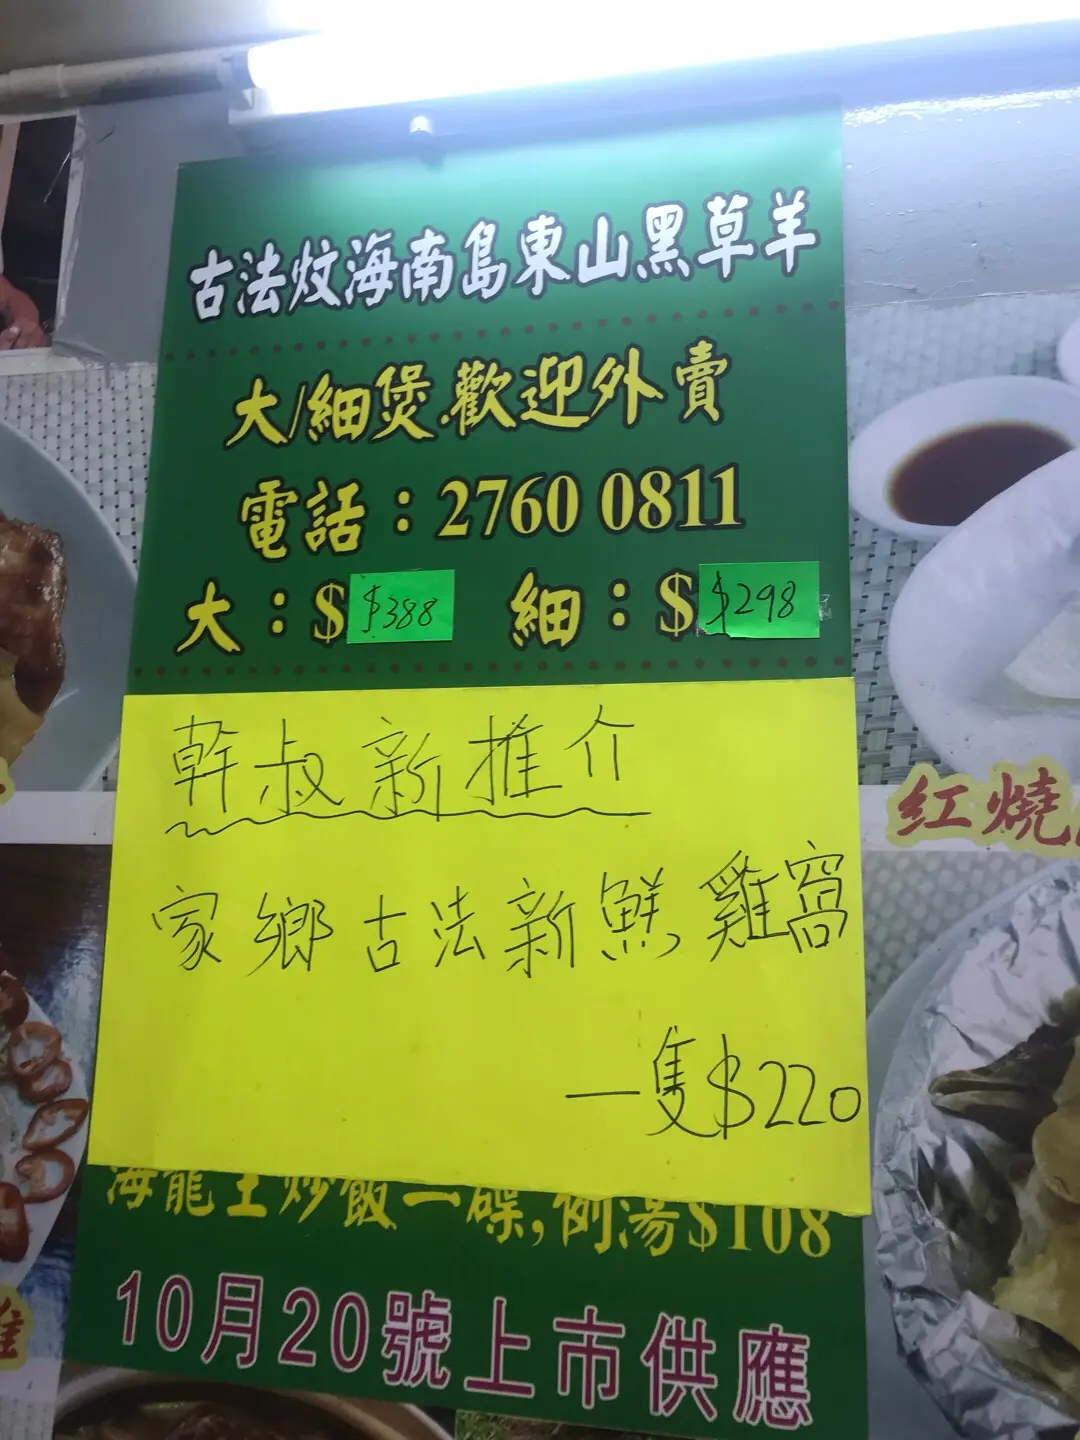 古法炆海南島東山黑草羊
大/細煲.歡迎外賣
電話：2760 0811
大：$ $388 細：$ $298
幹叔新推介
家鄉古法新鮮雞窩
一隻$220
海龍王炒飯一碟,例湯$108
10月20號上市供應
紅燒